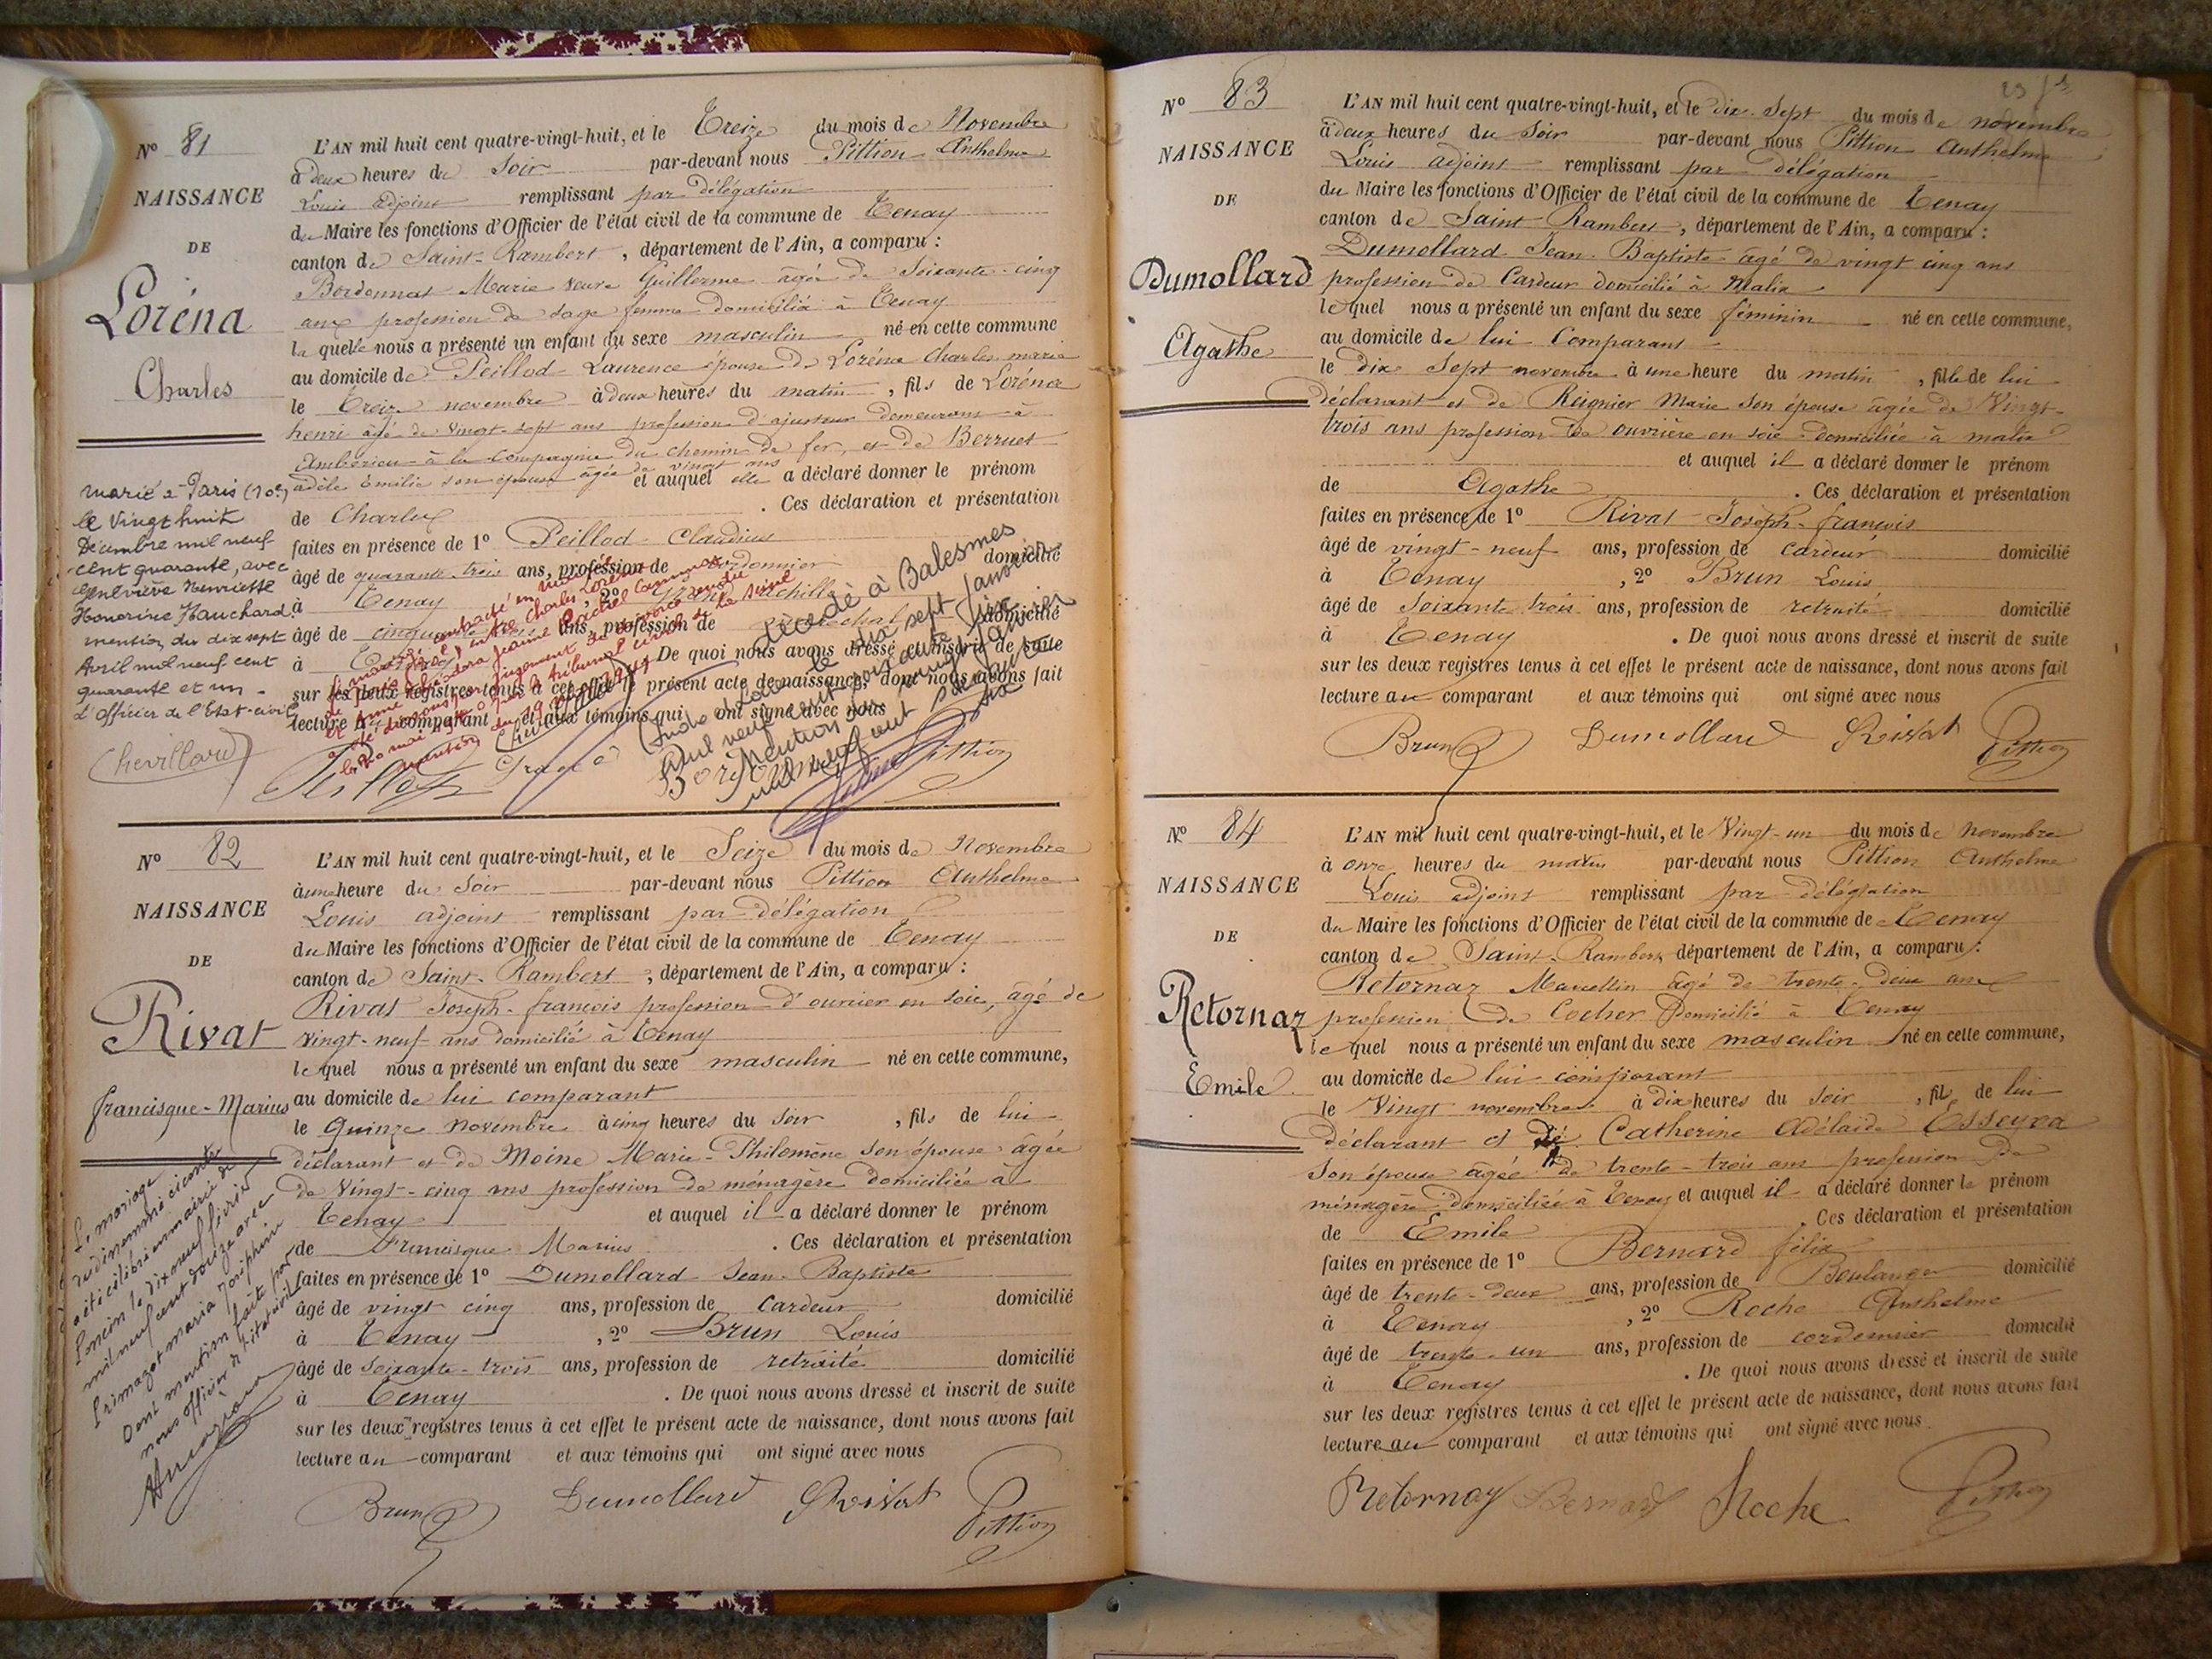 N° 81
NAISSANCE
DE
Loréna
Charles
L'AN mil huit cent quatre-vingt-huit, et le Treize du mois de Novembre
à deux heures du Soir par-devant nous Pittion Anthelme
Louis adjoint remplissant par délégation
du Maire les fonctions d'Officier de l'état civil de la commune de Tenay
canton de Saint-Rambert, département de l'Ain, a comparu :
Bordonnat Marie veuve Guillerme agée de Soixante-cinq
ans profession de sage femme domiciliée à Tenay
la quelle nous a présenté un enfant du sexe masculin né en cette commune
au domicile de Peillod Laurence épouse de Loréna Charles marie
le treize novembre à deux heures du matin, fils de Loréna
henri âgé de vingt-sept ans profession d'ajusteur demeurant à
Ambérieu à la Compagnie du chemin de fer, et de Berruet
adèle Emilie son épouse âgée de vingt ans et auquel elle a déclaré donner le prénom
de Charles . Ces déclaration et présentation
faites en présence de 1° Peillod Claudius
âgé de quarante-trois ans, profession de cordonnier domicilié
à Tenay, 2° Achille
âgé de ans, profession de domicilié
à Tenay. De quoi nous avons dressé et inscrit de suite
sur les deux registres tenus à cet effet le présent acte de naissance, dont nous avons fait
lecture comparant et aux témoins qui ont signé avec nous
marié à Paris (10e)
le vingt huit
Décembre mil neuf
cent quarante, avec
Geneviève Henriette
Honorine Hauchard.
mention du dix sept
Avril mil neuf cent
quarante et un -
L'Officier de l'Etat-civil
Chevillard
décédé à Balesmes
(Indre et Loire) le dix sept Janvier
mil neuf cent soixante six
Mention du vingt Janvier
mil neuf cent soixante
six
Pittion
N° 82
NAISSANCE
DE
Rivat
francisque-Marius
L'AN mil huit cent quatre-vingt-huit, et le Seize du mois de Novembre
à une heure du Soir par-devant nous Pittion Anthelme
Louis adjoint remplissant par délégation
du Maire les fonctions d'Officier de l'état civil de la commune de Tenay
canton de Saint-Rambert, département de l'Ain, a comparu :
Rivat Joseph-françois profession d'ouvrier en soie, âgé de
vingt-neuf ans domicilié à Tenay
lequel nous a présenté un enfant du sexe masculin né en cette commune,
au domicile de lui comparant
le Quinze novembre à cinq heures du Soir, fils de lui
déclarant et de Moine Marie-Philomène son épouse agée
de Vingt-cinq ans profession de ménagère domiciliée à
Tenay et auquel il a déclaré donner le prénom
de Francisque Marius . Ces déclaration et présentation
faites en présence de 1° Dumollard Jean-Baptiste
âgé de vingt cinq ans, profession de cardeur domicilié
à Tenay, 2° Brun Louis
âgé de soixante-trois ans, profession de retraité domicilié
à Tenay . De quoi nous avons dressé et inscrit de suite
sur les deux registres tenus à cet effet le présent acte de naissance, dont nous avons fait
lecture au comparant et aux témoins qui ont signé avec nous
Le mariage
du dénommé ci contre
a été célébré en mairie de
Poncin le dix neuf février
mil neuf cent douze avec
Primazot maria Josephine
Dont mention faite par
nous officier de l'état civil
Brun Dumollard Rivat Pittion
N° 83
NAISSANCE
DE
Dumollard
Agathe
L'AN mil huit cent quatre-vingt-huit, et le dix-Sept du mois de novembre
à deux heures du Soir par-devant nous Pittion Anthelme
Louis adjoint remplissant par délégation
du Maire les fonctions d'Officier de l'état civil de la commune de Tenay
canton de Saint-Rambert, département de l'Ain, a comparu :
Dumollard Jean-Baptiste âgé de vingt cinq ans
profession de Cardeur domicilié à Malix
lequel nous a présenté un enfant du sexe féminin né en cette commune,
au domicile de lui Comparant
le dix Sept novembre à une heure du matin, fille de lui
déclarant et de Reignier Marie son épouse âgée de Vingt-
trois ans profession de ouvrière en soie domiciliée à malix
et auquel il a déclaré donner le prénom
de Agathe . Ces déclaration et présentation
faites en présence de 1° Rivat Joseph-françois
âgé de vingt-neuf ans, profession de cardeur domicilié
à Tenay, 2° Brun Louis
âgé de soixante trois ans, profession de retraité domicilié
à Tenay . De quoi nous avons dressé et inscrit de suite
sur les deux registres tenus à cet effet le présent acte de naissance, dont nous avons fait
lecture au comparant et aux témoins qui ont signé avec nous
Brun Dumollard Rivat Pittion
N° 84
NAISSANCE
DE
Retornaz
Emile
L'AN mil huit cent quatre-vingt-huit, et le Vingt-un du mois de novembre
à onze heures du matin par-devant nous Pittion Anthelme
Louis adjoint remplissant par délégation
du Maire les fonctions d'Officier de l'état civil de la commune de Tenay
canton de Saint-Rambert département de l'Ain, a comparu :
Retornaz Marcellin âgé de trente-deux ans
profession de Cocher Domicilié à Tenay
lequel nous a présenté un enfant du sexe masculin né en cette commune,
au domicile de lui comparant
le Vingt novembre à dix heures du soir, fils de lui
déclarant et de Catherine Adélaide Esseyra
son épouse âgée de trente-trois ans profession De
ménagère domiciliée à Tenay et auquel il a déclaré donner le prénom
de Emile . Ces déclaration et présentation
faites en présence de 1° Bernard félix
âgé de trente-deux ans, profession de Boulanger domicilié
à Tenay, 2° Roche Anthelme
âgé de trente-un ans, profession de cordonnier domicilié
à Tenay . De quoi nous avons dressé et inscrit de suite
sur les deux registres tenus à cet effet le présent acte de naissance, dont nous avons fait
lecture au comparant et aux témoins qui ont signé avec nous.
Retornaz Bernard Roche Pittion